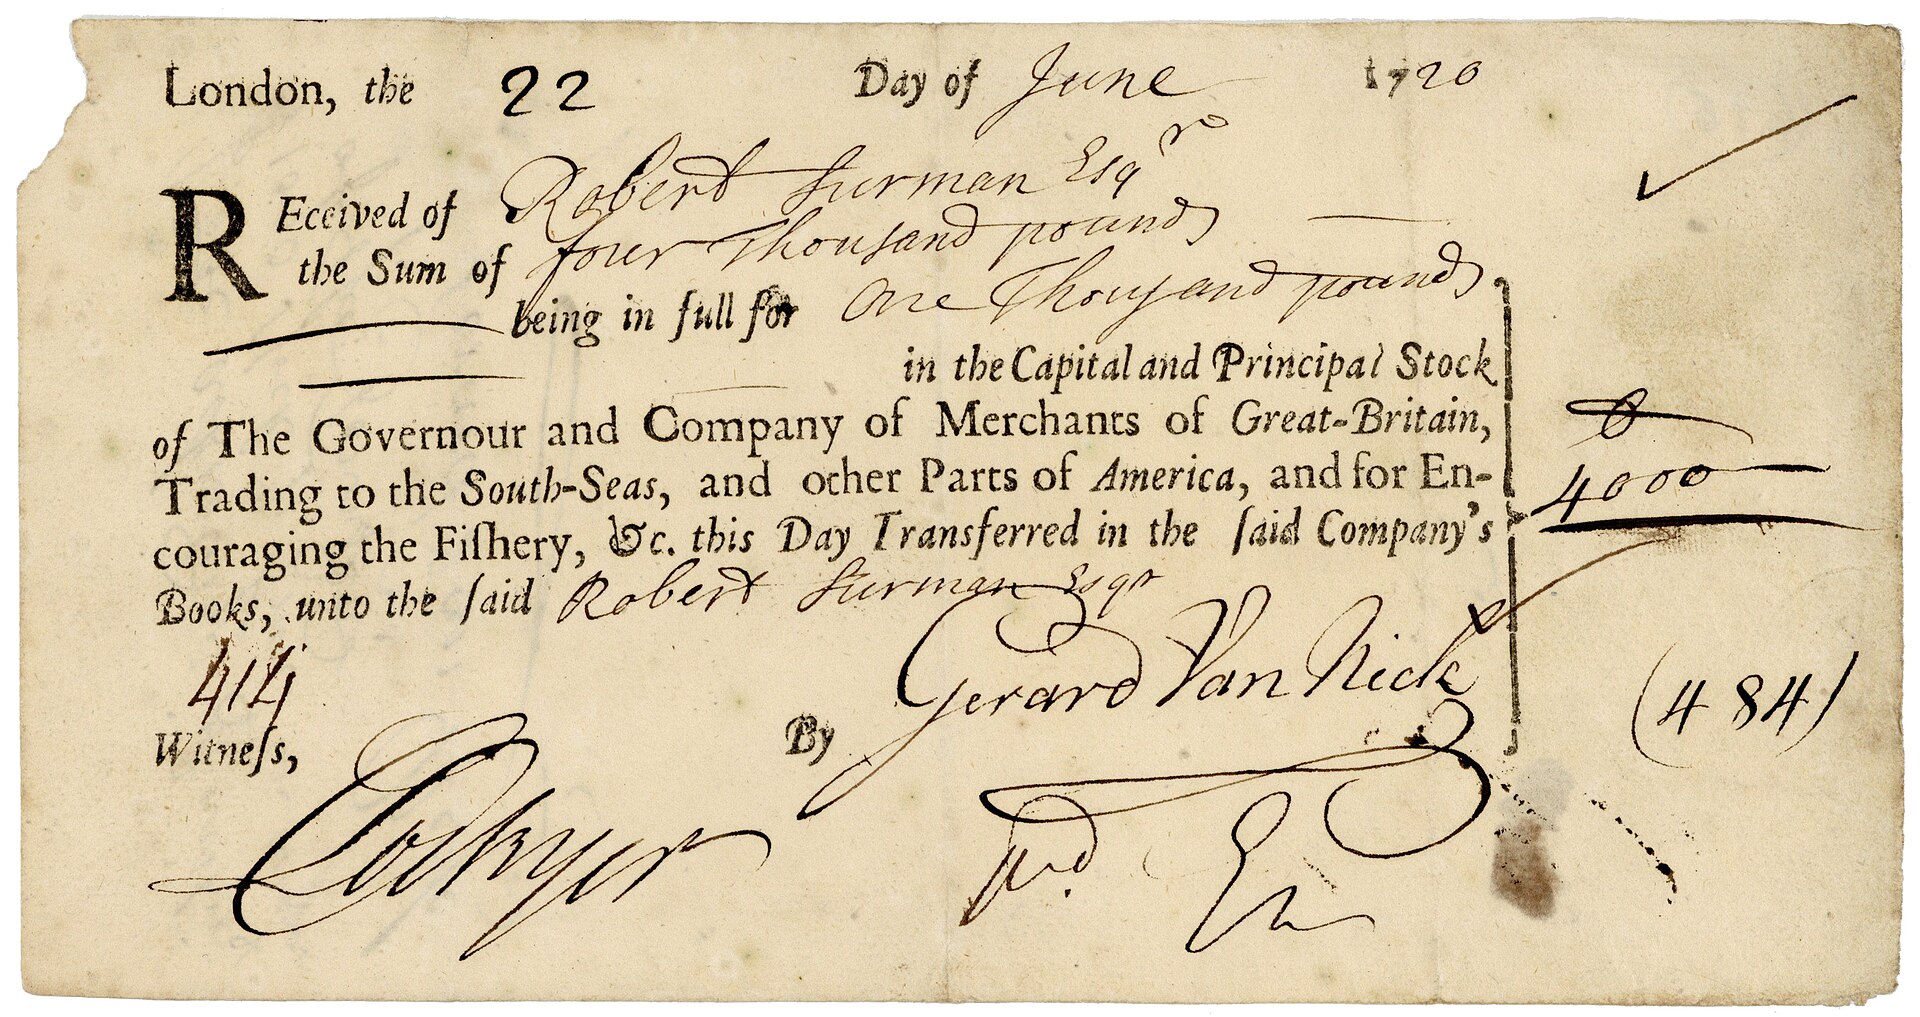 London, the 22 Day of June 1720
REceived of Robert Surman Esqr
the Sum of four Thousand pounds
being in full for One Thousand pounds
in the Capital and Principal Stock
of The Governour and Company of Merchants of Great-Britain,
Trading to the South-Seas, and other Parts of America, and for En-
4000
couraging the Fiſhery, &c. this Day Transferred in the ſaid Company's
Books, unto the ſaid Robert Surman Esqr
414
Gerard Van Neck
(484)
Witneſs, By
Lockyer